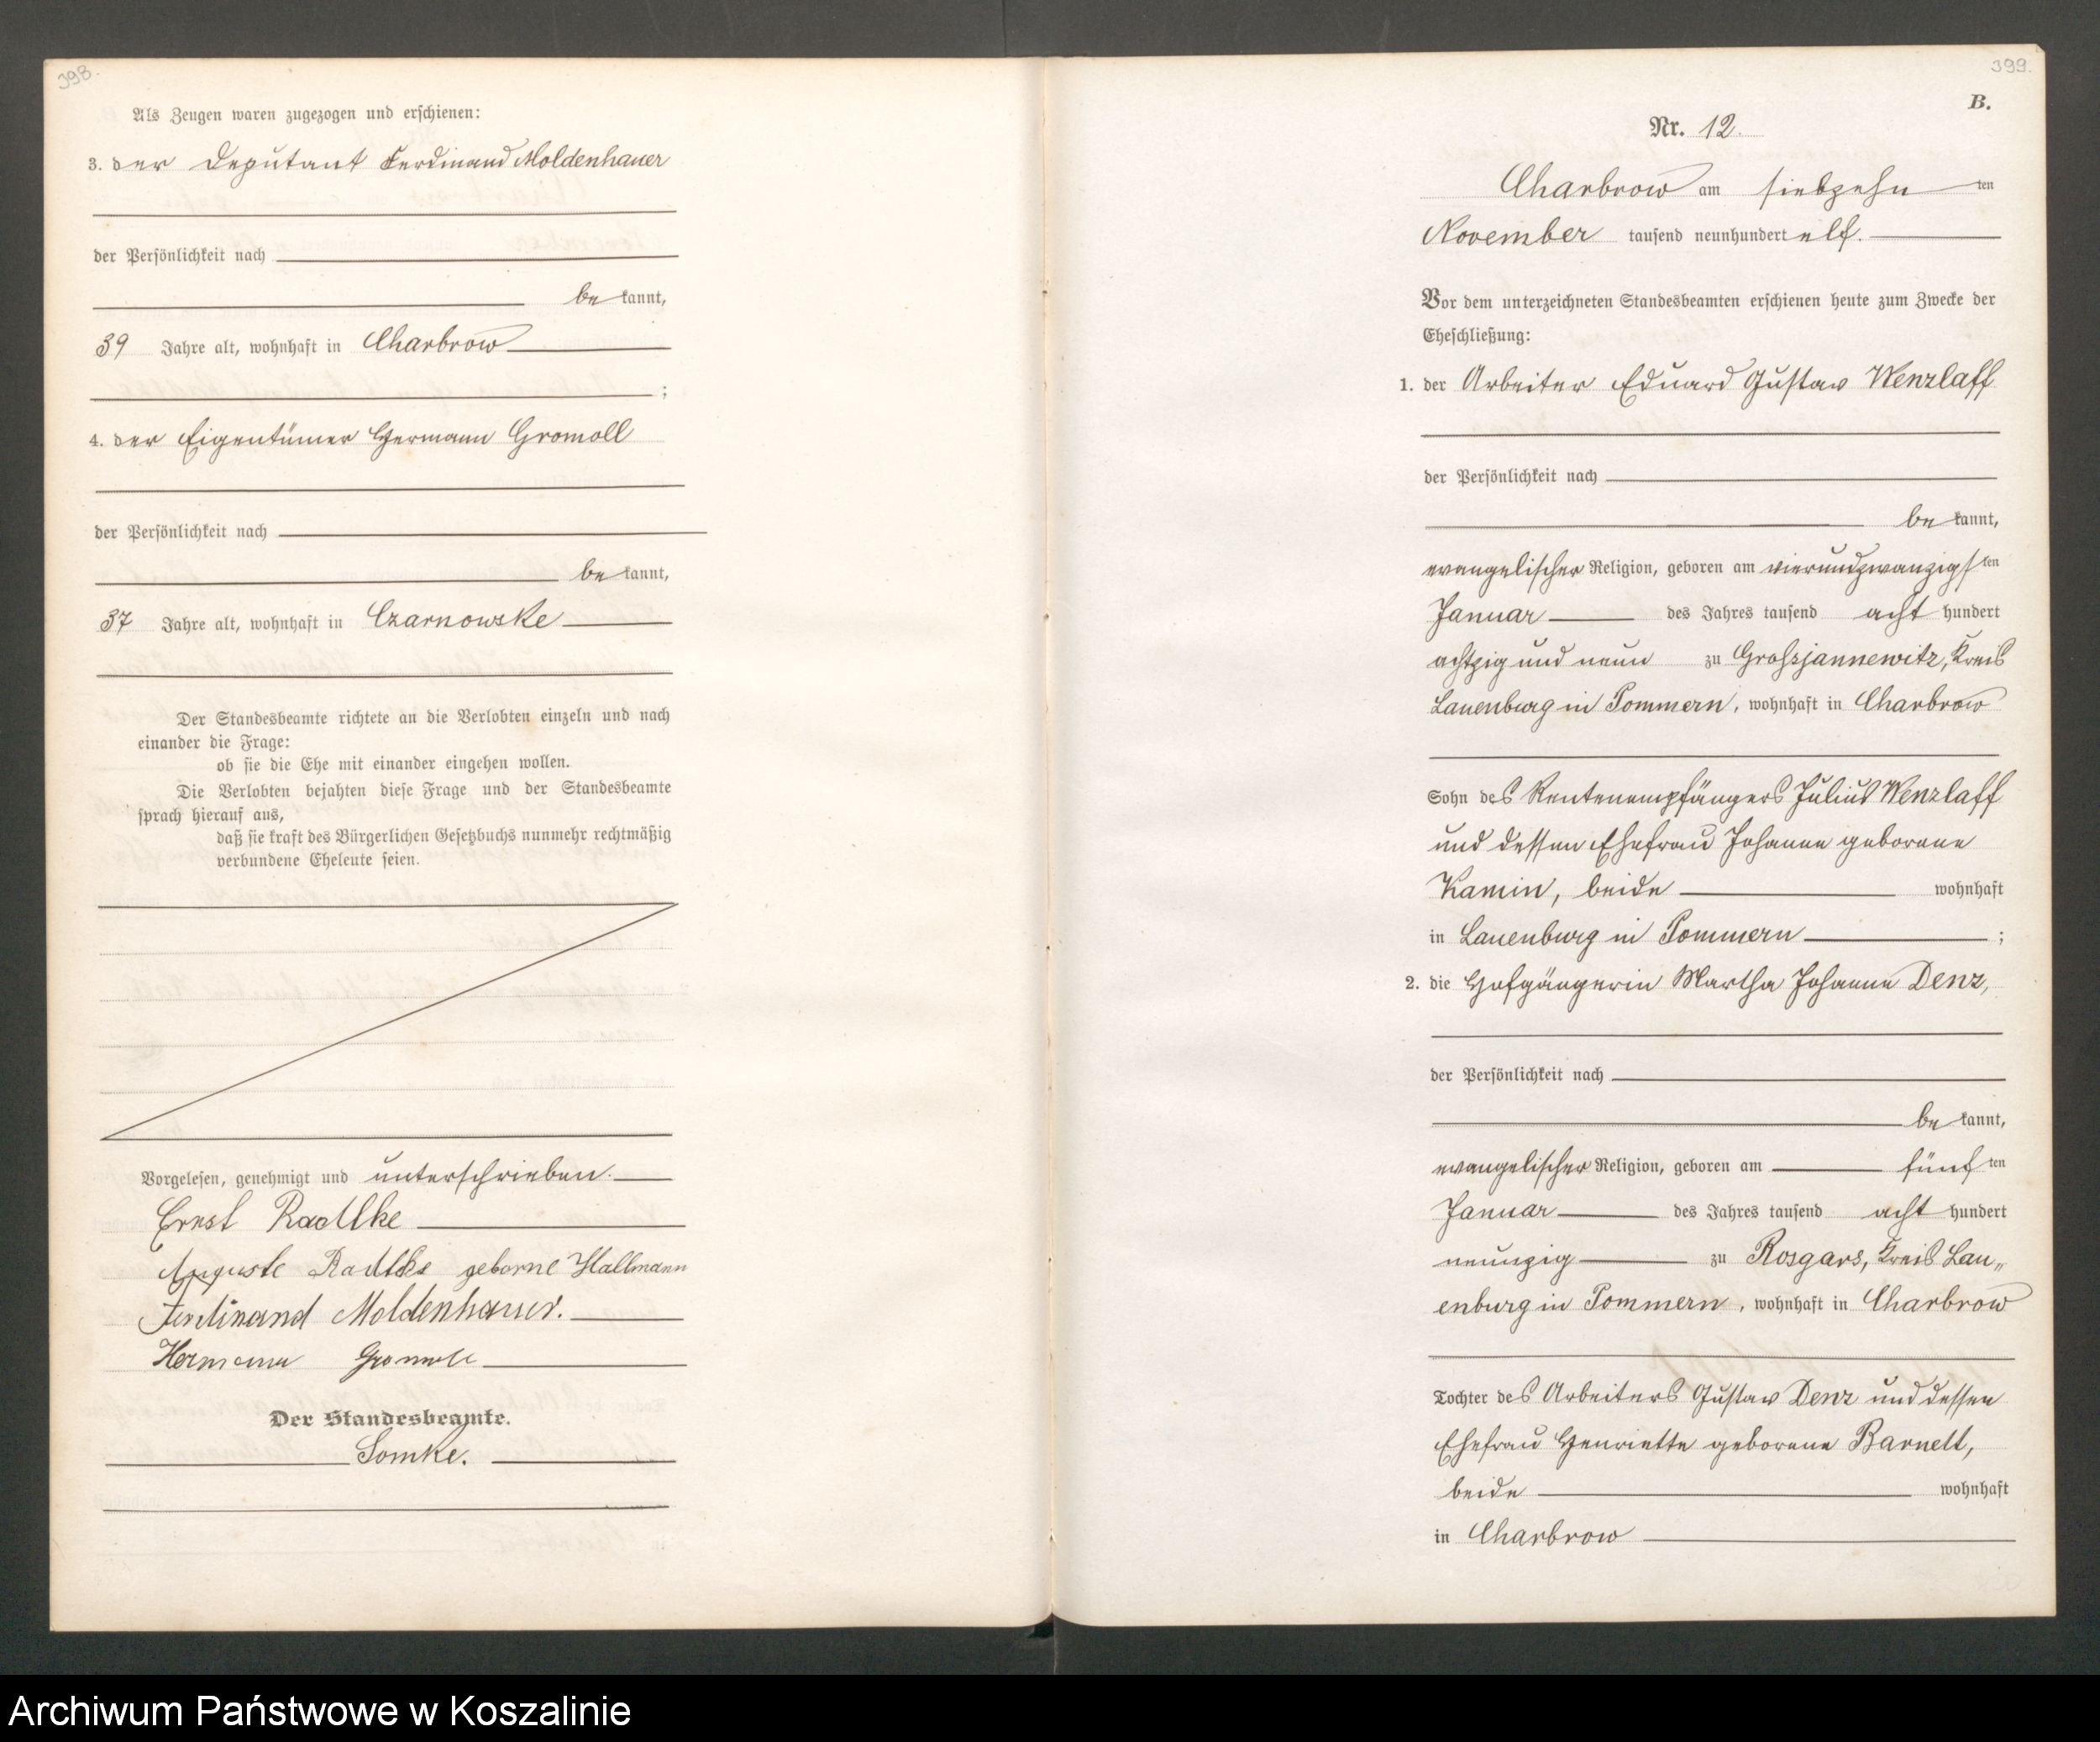 398.
Als Zeugen waren zugezogen und erschienen:
3. der Deputant Ferdinand Moldenhauer
der Persönlichkeit nach
be kannt,
39 Jahre alt, wohnhaft in Charbrow
;
4. der Eigentümer Hermann Gromoll
der Persönlichkeit nach
be kannt,
37 Jahre alt, wohnhaft in Czarnowske
Der Standesbeamte richtete an die Verlobten einzeln und nach
einander die Frage:
ob sie die Ehe mit einander eingehen wollen.
Die Verlobten bejahten diese Frage und der Standesbeamte
sprach hierauf aus,
daß sie kraft des Bürgerlichen Gesetzbuchs nunmehr rechtmäßig
verbundene Eheleute seien.
Vorgelesen, genehmigt und unterschrieben.
Ernst Radtke
Auguste Radtke geborne Hallmann
Ferdinand Moldenhauer.
Hermann Gromoll
Der Standesbeamte.
Somke.
399.
B.
Nr. 12.
Charbrow am siebzehn ten
November tausend neunhundert elf.
Vor dem unterzeichneten Standesbeamten erschienen heute zum Zwecke der
Eheschließung:
1. der Arbeiter Eduard Gustav Wenzlaff
der Persönlichkeit nach
be kannt,
evangelischer Religion, geboren am vierundzwanzigs ten
Januar des Jahres tausend acht hundert
achtzig und neun zu Grossjannewitz, Kreis
Lauenburg in Pommern, wohnhaft in Charbrow
Sohn des Rentenempfängers Julius Wenzlaff
und dessen Ehefrau Johanne geborene
Kamin, beide wohnhaft
in Lauenburg in Pommern ;
2. die Hofgängerin Martha Johanne Denz,
der Persönlichkeit nach
be kannt,
evangelischer Religion, geboren am fünf ten
Januar des Jahres tausend acht hundert
neunzig zu Rosgars, Kreis Lau„
enburg in Pommern, wohnhaft in Charbrow
Tochter des Arbeiters Gustav Denz und dessen
Ehefrau Henriette geborene Barnett,
beide wohnhaft
in Charbrow
Archiwum Państwowe w Koszalinie